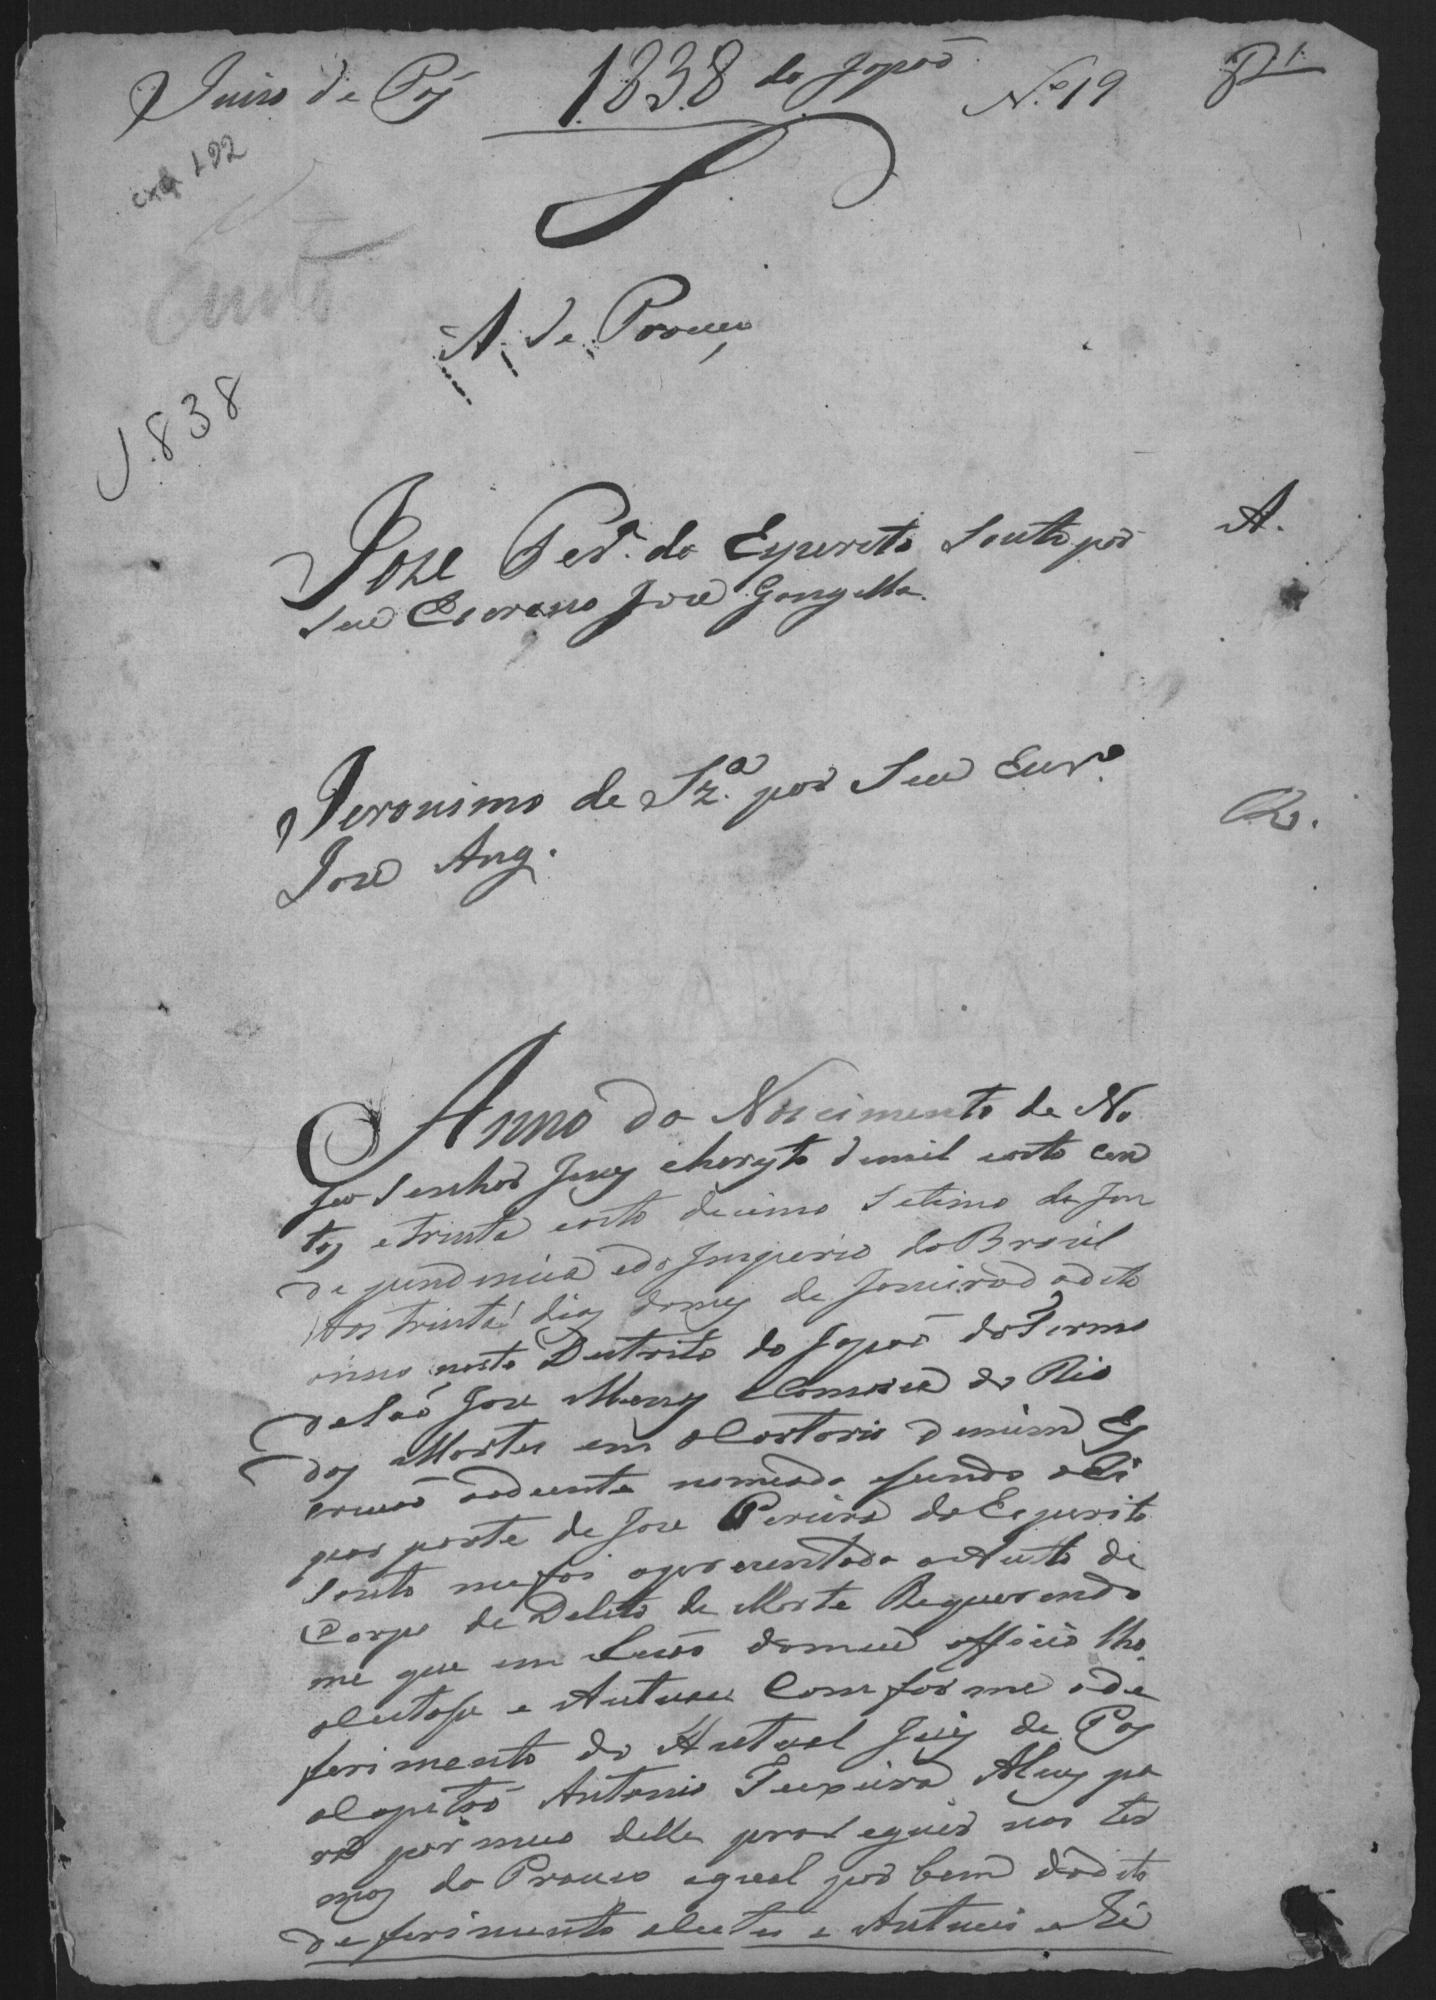 Juiso de Paz 1838 do Japaõ N.º 19 P. 1
cxa 192
A. de Proceço
1.838
Joze Per.ª do Esperito Santo por A.
seu Escravo Joze Gangella.
Jeronimo de Sz.ª por seu Escr.º R.
Joze Ang.
Anno do Nascimento de No
ço Senhor Jezuz Christo de mil eoito cen
tos e trinta eoito decimo setimo da Jn
dependencia edo Jmperio do Brasil
aos trinta dias domez de Janeiro do dito
anno nesto Destrito do Japaõ do Termo
de Saõ Joze Comarca do Rio
das Mortes em o Cartorio de mim Es
crivaõ aodiante nomeado e sendo ahi
por parte de Joze Pereira do Esperito
Santo mefoi aprezentado o Auto de
Corpo de Delito de Morte Requerendo
me que em rezaõ domeu officio lho
aceitase e Autuase Comforme ode
ferimento do Autual Juiz de Paz
o Capitaõ Antonio Teixeira Alvez pa
ra por meio delle proseguir nos ter
mos do Proceço oqual por bem do dito
deferimento aceitei e Autuei e Fi